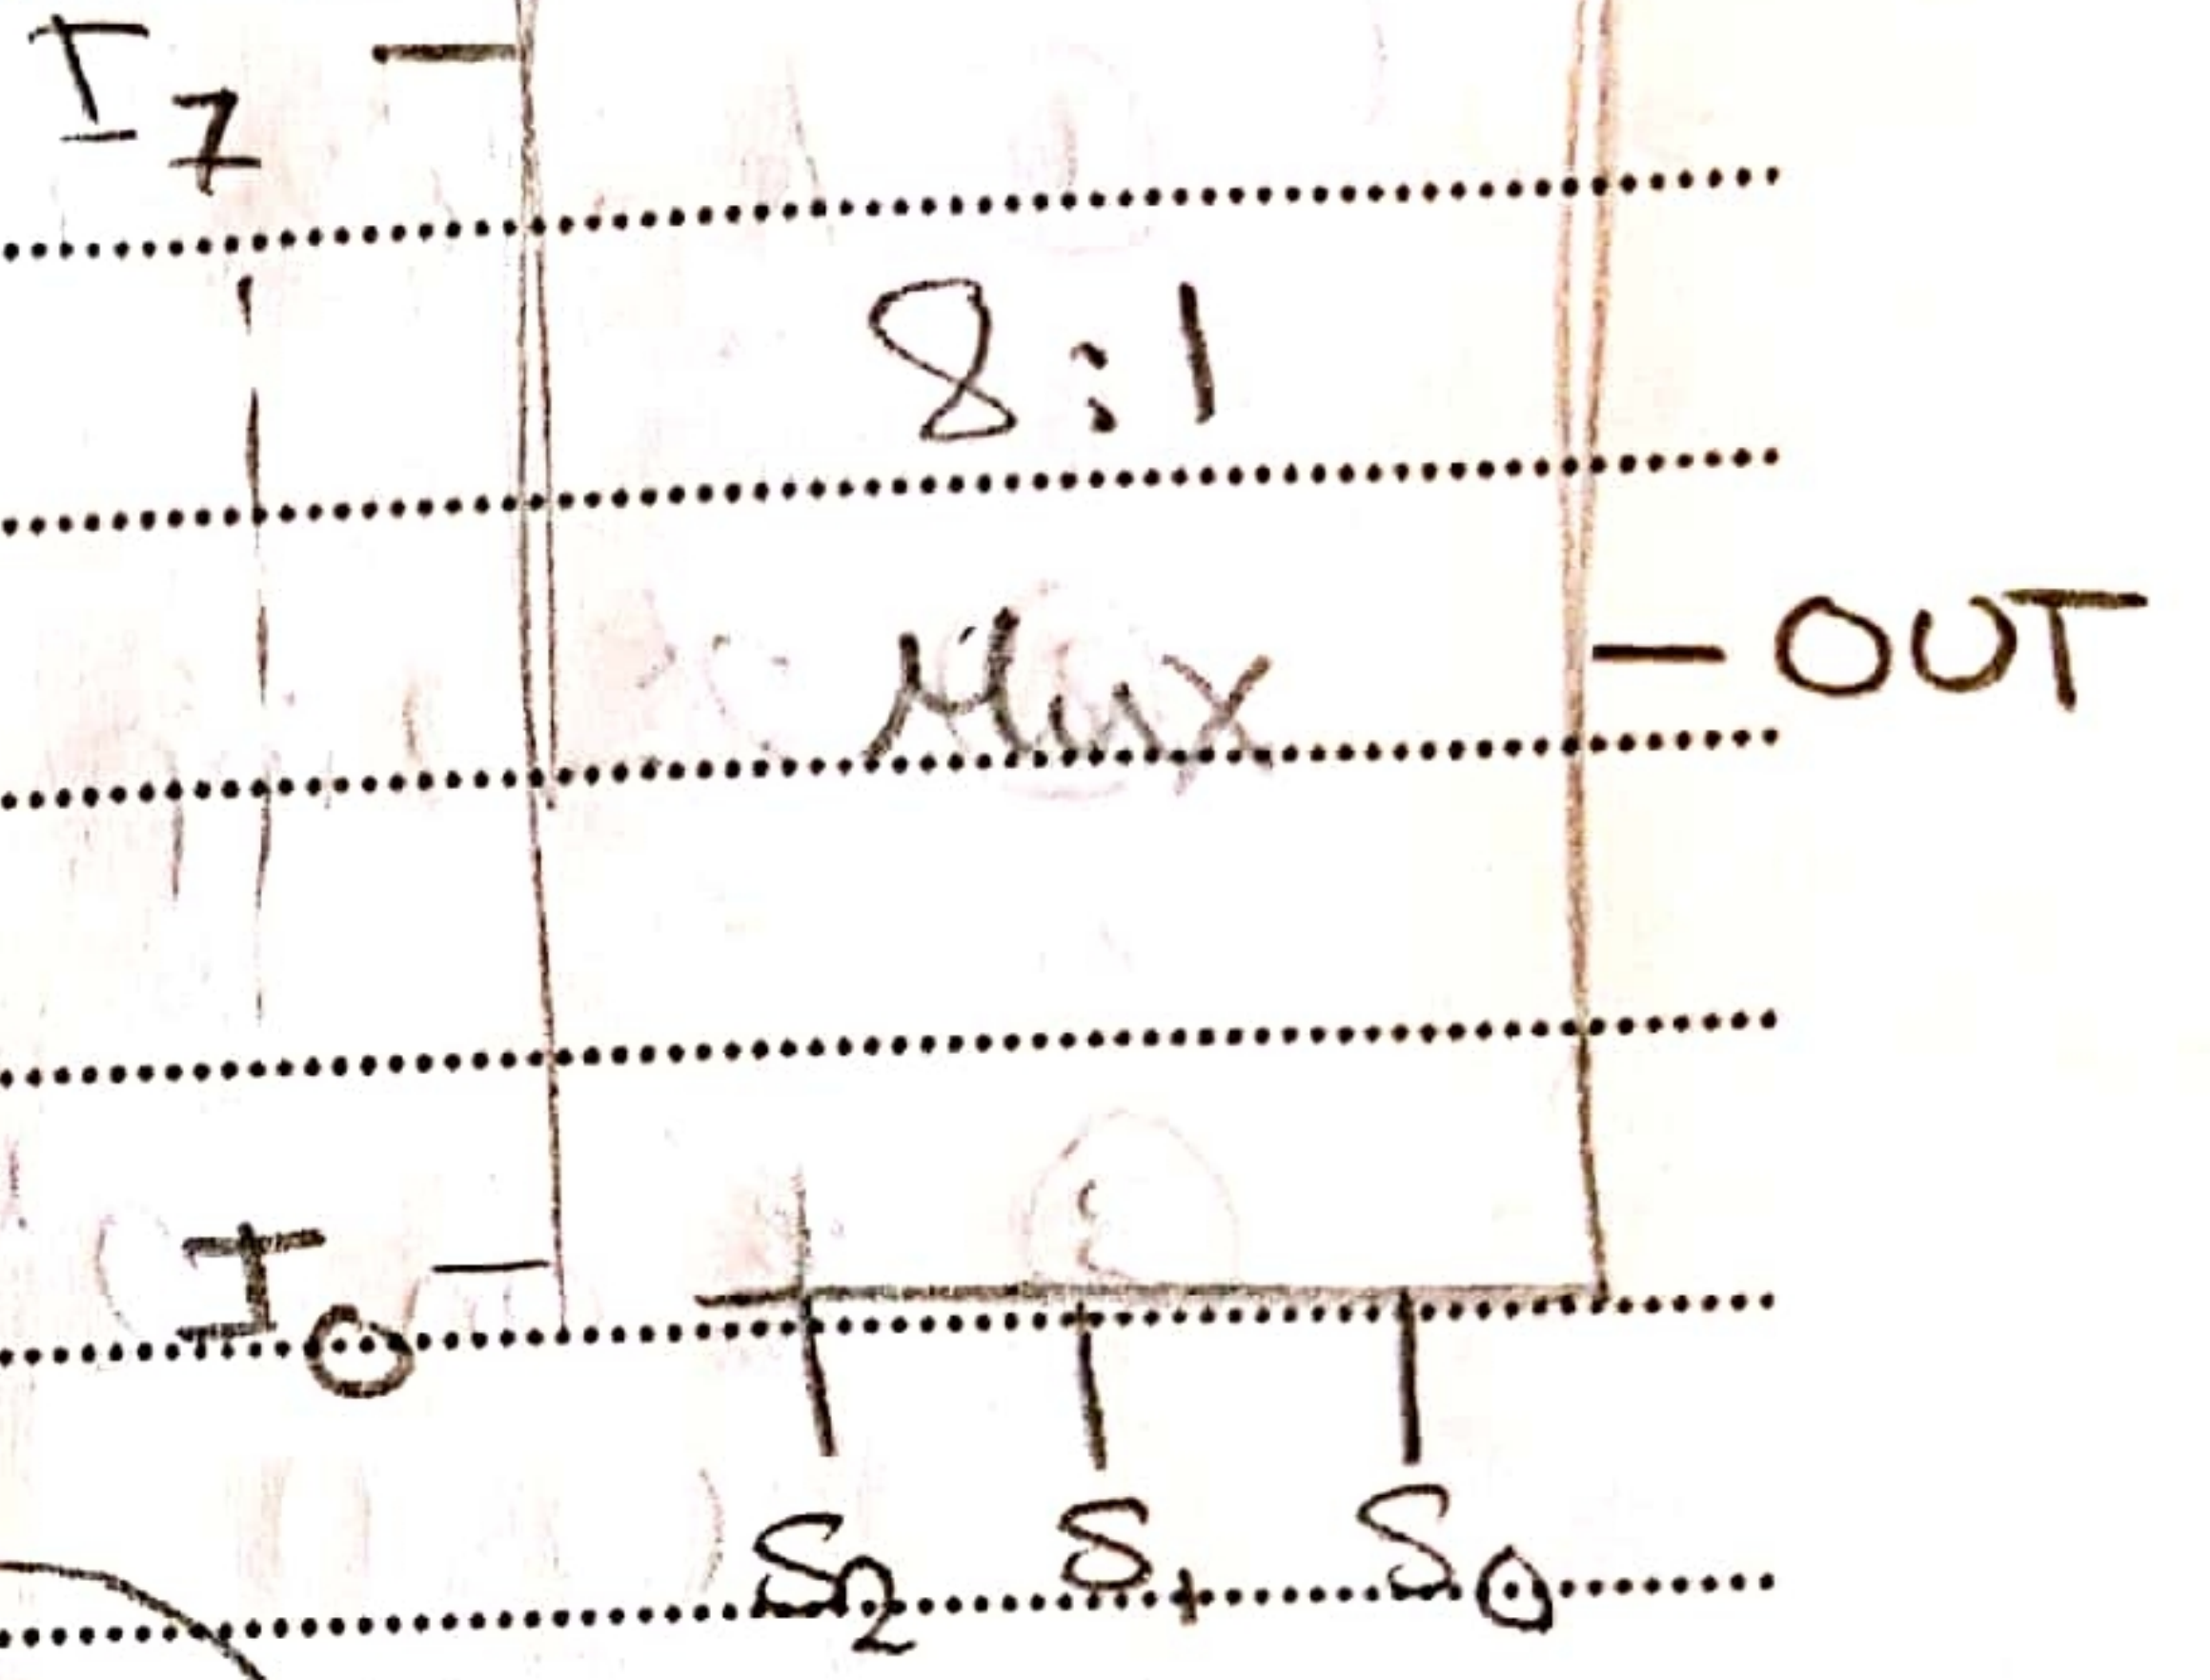 I7
8:1
Mux
OUT
I0
S2 S1 S0